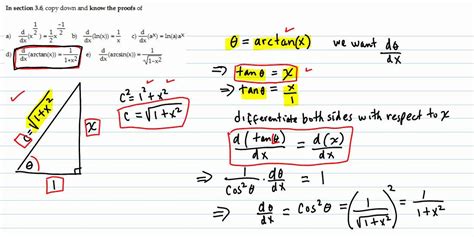 In section 3.6, copy down and know the proofs of
a) d/dx (x^(1/2)) = 1/2 x^(-1/2) b) d/dx (ln(x)) = 1/x c) d/dx (a^x) = ln(a)a^x
d) d/dx (arctan(x)) = 1/(1+x²) e) d/dx (arcsin(x)) = 1/√(1-x²)
θ = arctan(x) we want dθ/dx
⇒ tanθ = x
⇒ tanθ = x/1
c² = 1² + x²
c = √(1+x²)
c = √(1+x²)
x
θ
1
differentiate both sides with respect to x
d(tanθ)/dx = d(x)/dx
⇒ 1/cos²θ · dθ/dx = 1
⇒ dθ/dx = cos²θ = (1/√(1+x²))² = 1/(1+x²)